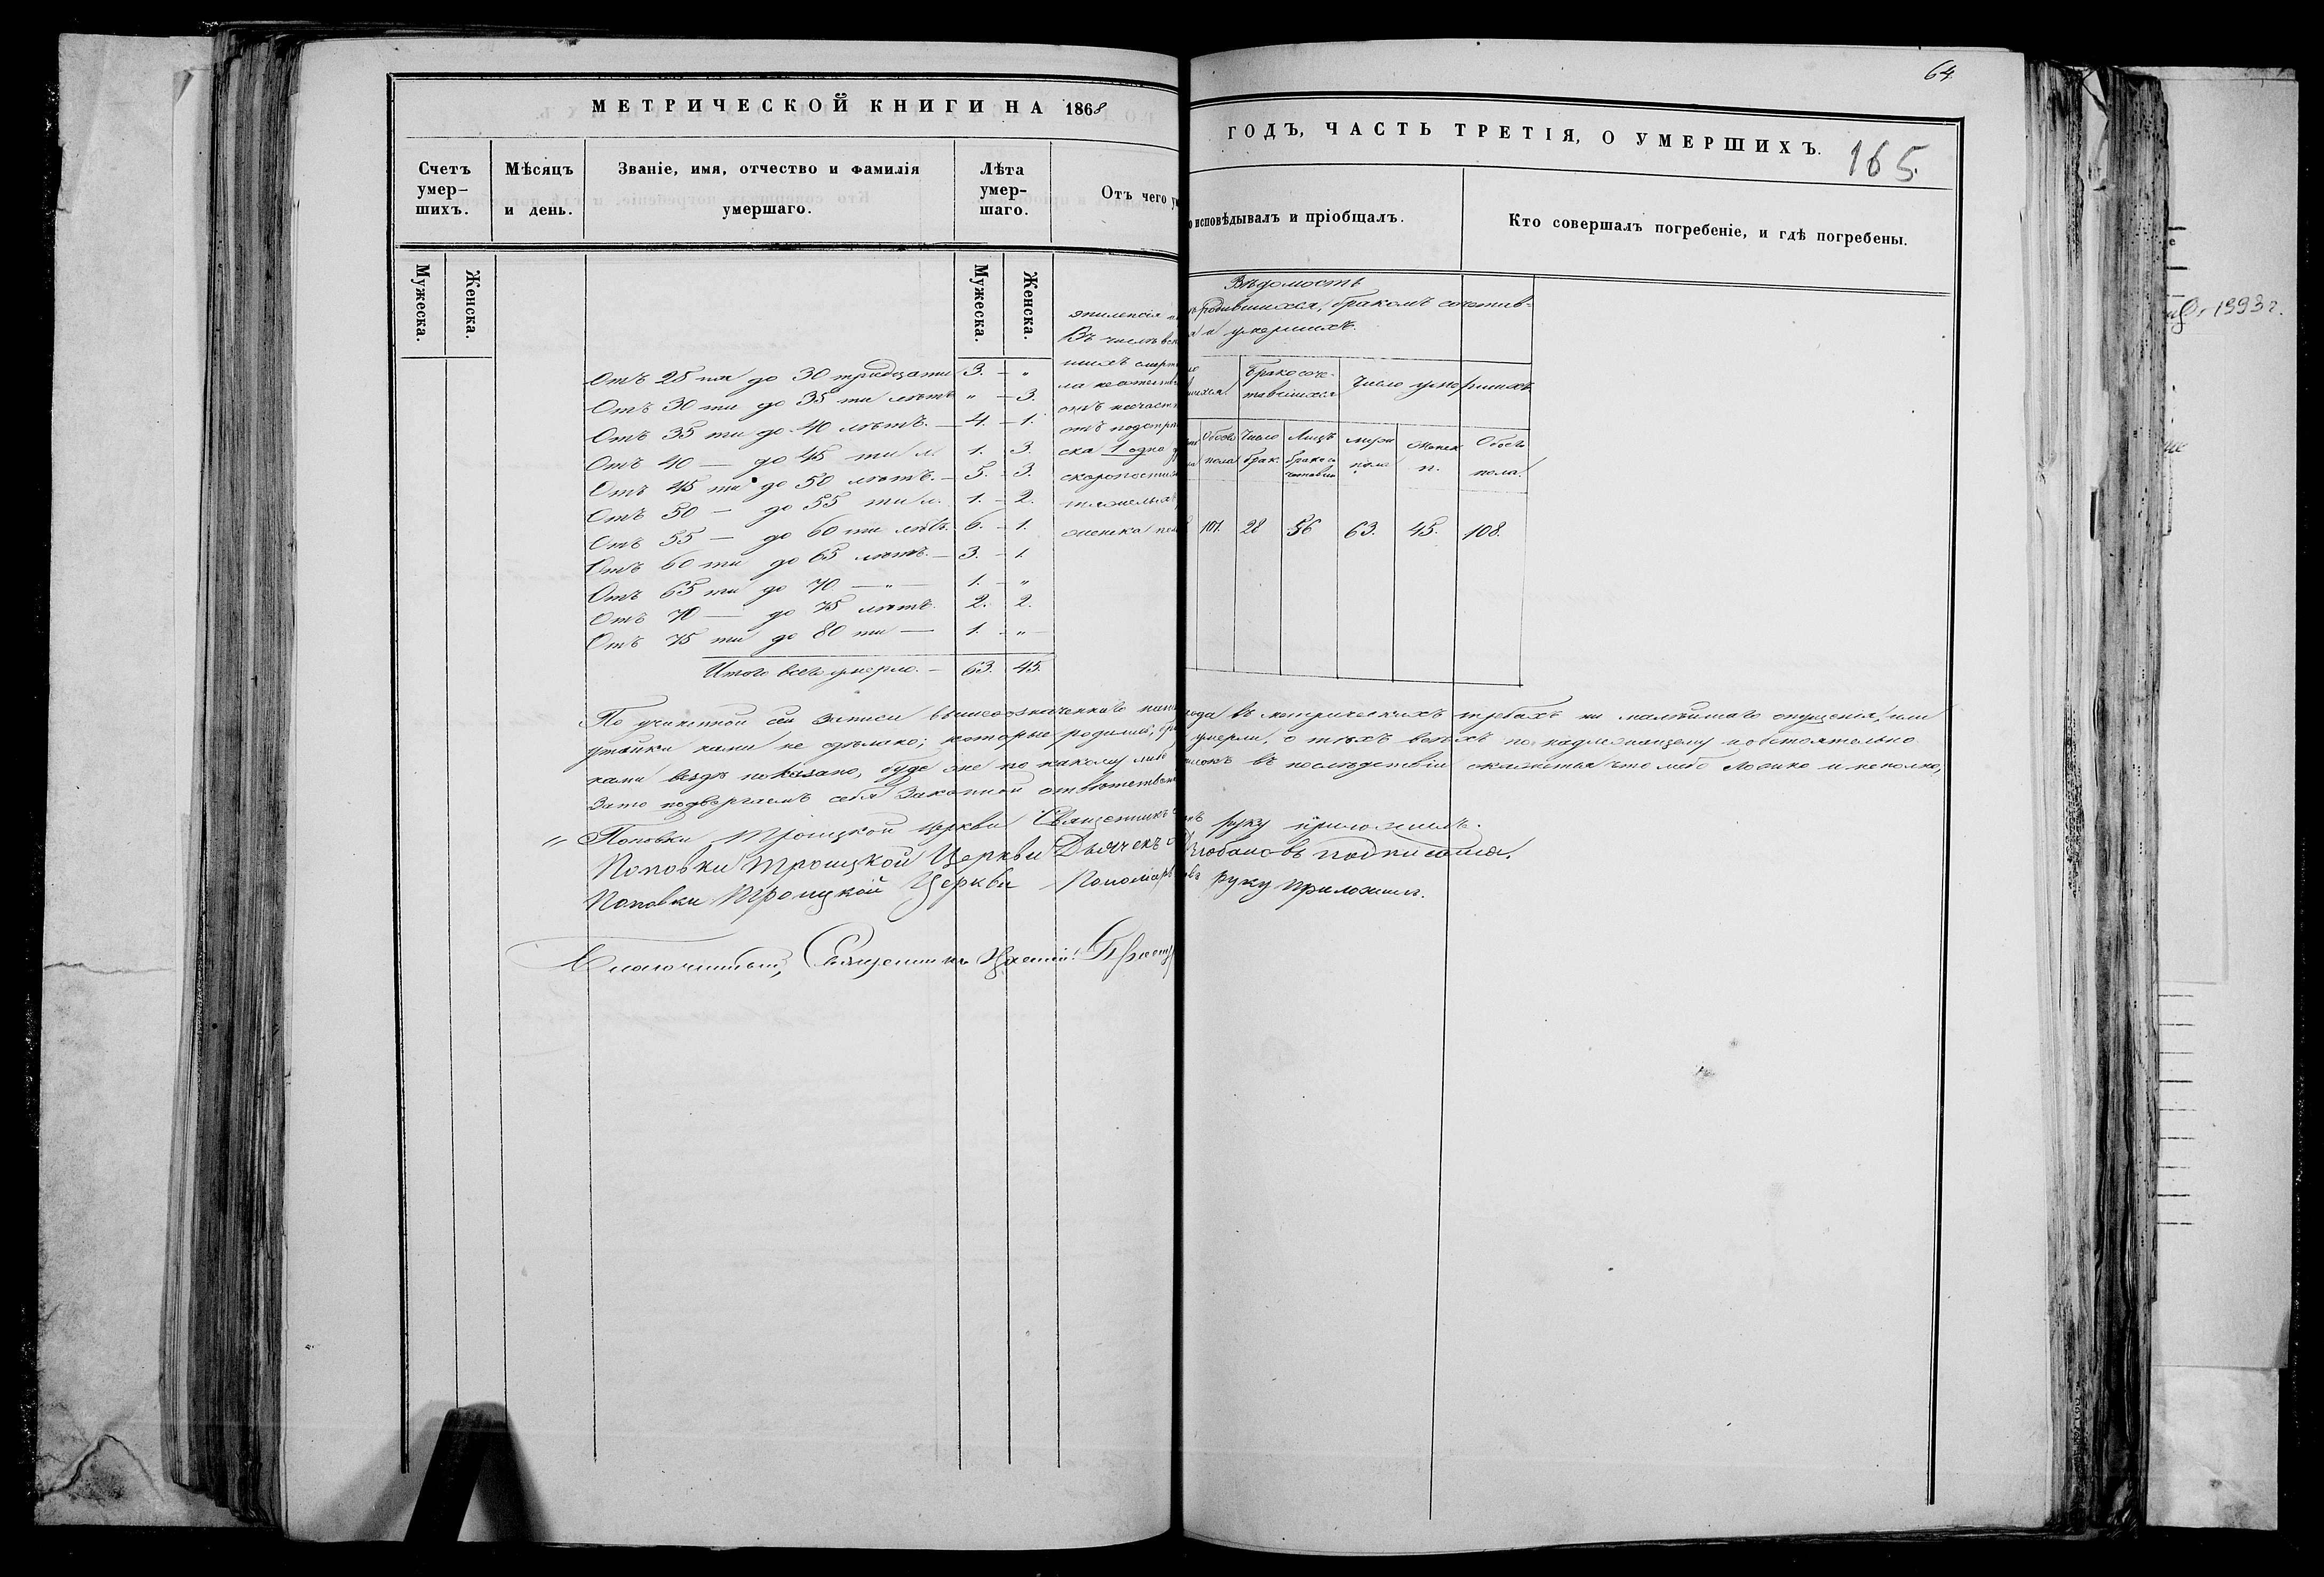 64
МЕТРИЧЕСКОЙ КНИГИ НА 1868
ГОДЪ, ЧАСТЬ ТРЕТІЯ, О УМЕРШИХЪ.
165.
Счетъ умер-
шихъ.
Мѣсяцъ
и день.
Званіе, имя, отчество и фамилія
умершаго.
Лѣта
умер-
шаго.
Отъ чего
исповѣдывалъ и пріобщалъ.
Кто совершалъ погребеніе, и гдѣ погребены.
Мужеска.
Женска.
Мужеска.
Женска.
Отъ 25 ти до 30 тридцати 3. - "
Отъ 30 ти до 35 ти лѣтъ " - 3.
Отъ 35 ти до 40 лѣтъ. - 4. - 1.
Отъ 40 — до 45 ти л. 1. 3.
Отъ 45 ти до 50 лѣтъ. - 5. - 3.
Отъ 50 — до 55 ти л. 1. - 2.
Отъ 55 — до 60 ти лѣтъ. 6. - 1.
Отъ 60 ти до 65 лѣтъ. - 3. - 1.
Отъ 65 ти до 70 — " — 1. - "
Отъ 70 — до 75 лѣтъ. 2. 2.
Отъ 75 ти до 80 ти — 1. - "
Итого всего умерло. - 63. 45.
эпилепсія
Въ числѣ
шихъ
отъ несчаст
ска 1 одно
скоропостиж
Вѣдомость
родившихся, бракомъ сочетав-
и умершихъ.
Бракосоче-
тавшихся
Число умершихъ
Обоего
пола
Число
брак.
Лицъ
муж
пола
женск
п.
Обоего
пола.
101. 28 56 63. 45. 108.
По учиненной сей записи вышеозначеннаго года въ метрическихъ требахъ ни малѣйшаго опущенія, или
утайки нами не сдѣлано; которые родились, умерли, о тѣхъ всѣхъ по надлежащему и обстоятельно
нами вездѣ показано, буде же по какому либо въ послѣдствіи окажется что либо ложно и неполно,
за то подвергаемъ себя законной отвѣтствен
Поповки Троицкой церкви Священникъ руку приложилъ.
Поповки Троицкой Церкви Дьячекъ подписался.
Поповки Троицкой Церкви Пономарь руку приложилъ.
Благочинный, Священникъ
1993 г.